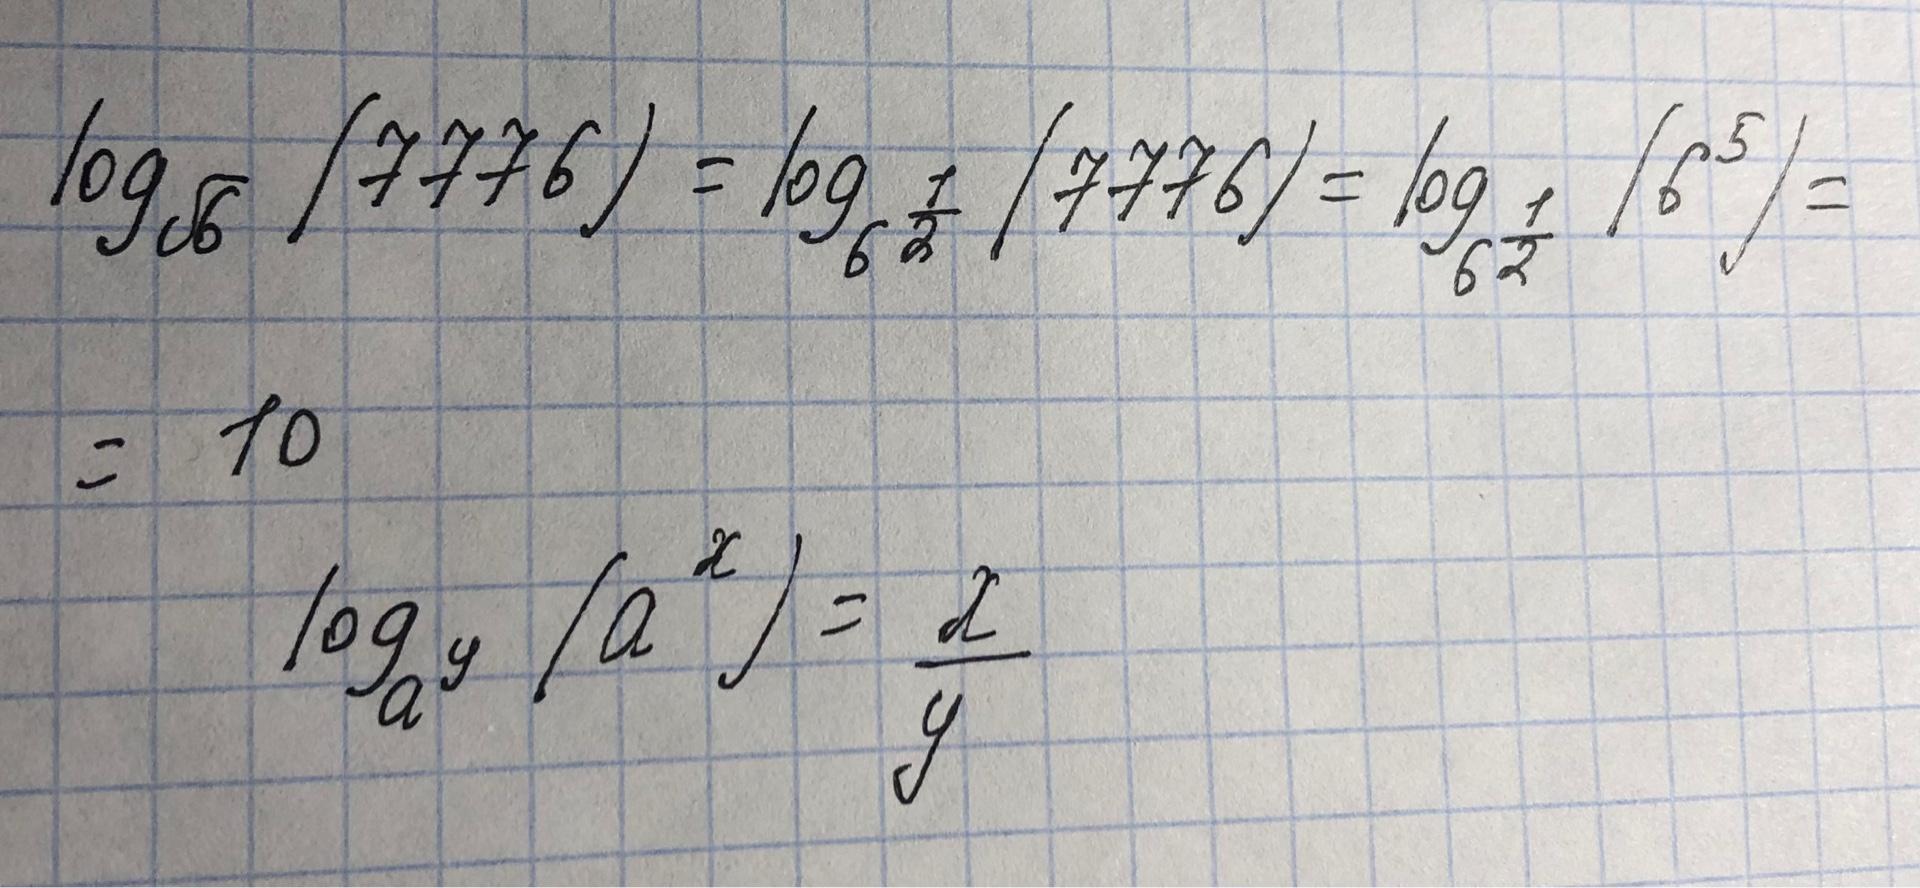 log_{√6} (7776) = log_{6^{1/2}} (7776) = log_{6^{1/2}} (6^5) =
= 10
log_{a^y} (a^x) = x/y